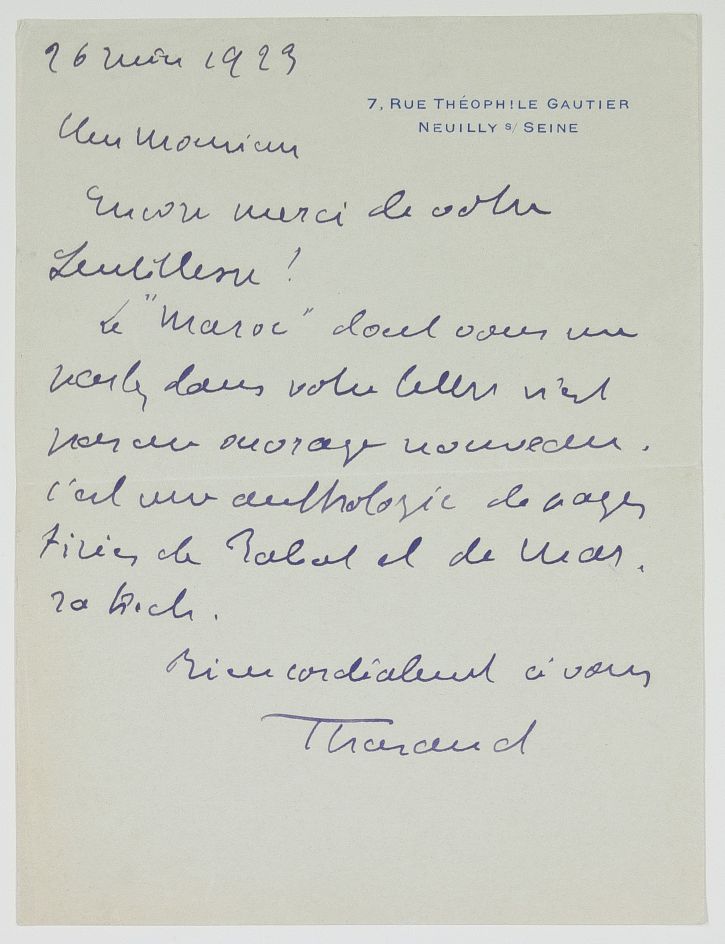 26 juin 1923
7, RUE THÉOPHILE GAUTIER
NEUILLY S/ SEINE
Cher Monsieur
Encore merci de votre
gentillesse !
Le "Maroc" dont vous me
parlez dans votre lettre n'est
pas un ouvrage nouveau.
C'est une anthologie de pages
tirées de Rabat et de Mar-
rakech.
Bien cordialement à vous
Tharaud